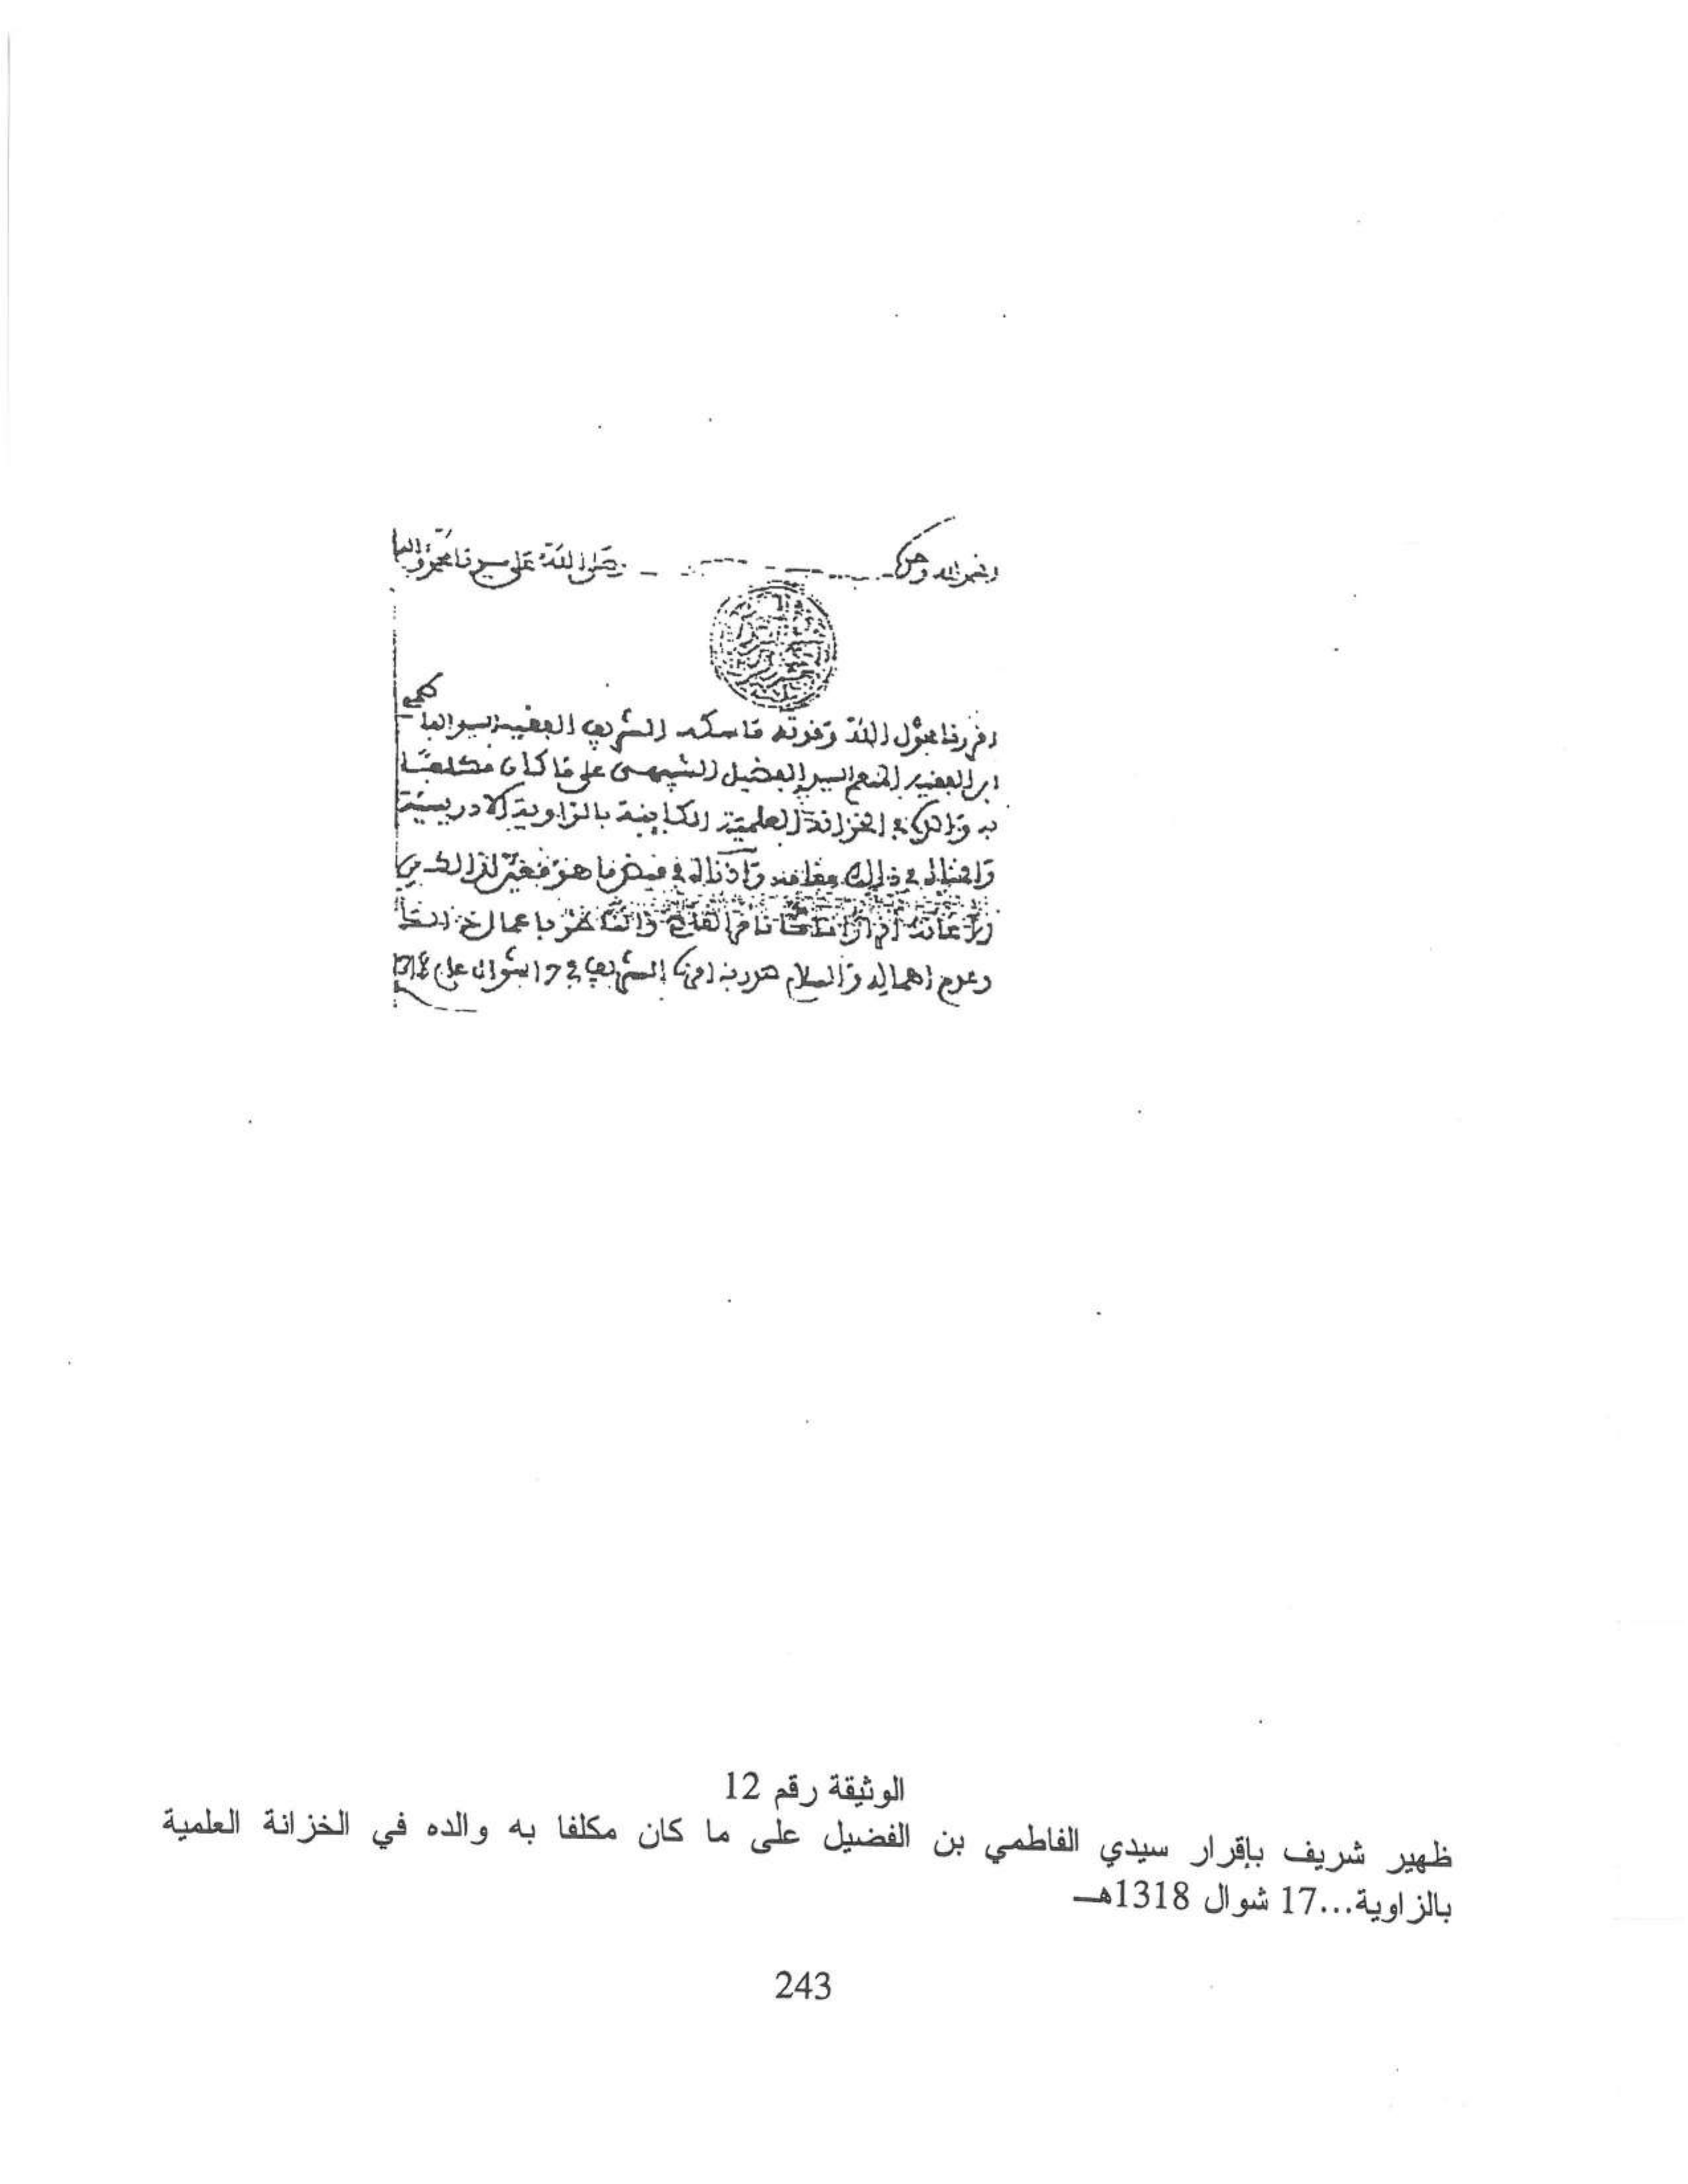 الحمد لله وحده صلى الله على سيدنا محمد وآله
اقررنا بحول الله وقوته ماسكه الشريف الفقيه السيد الفاطمي
ابن الفقيه المنعم السيد الفضيل الشبيهي على ما كان مكلفا
به والده في الخزانة العلمية الكاينة بالزاوية الادريسية
واقمناه في ذلك مقامه واذنا له في قبض ما هو معين لذالك من
وعدم اهماله والسلام صدر به امرنا الشريف في 17 شوال عام 1318
الوثيقة رقم 12
ظهير شريف بإقرار سيدي الفاطمي بن الفضيل على ما كان مكلفا به والده في الخزانة العلمية
بالزاوية...17 شوال 1318هـ
243